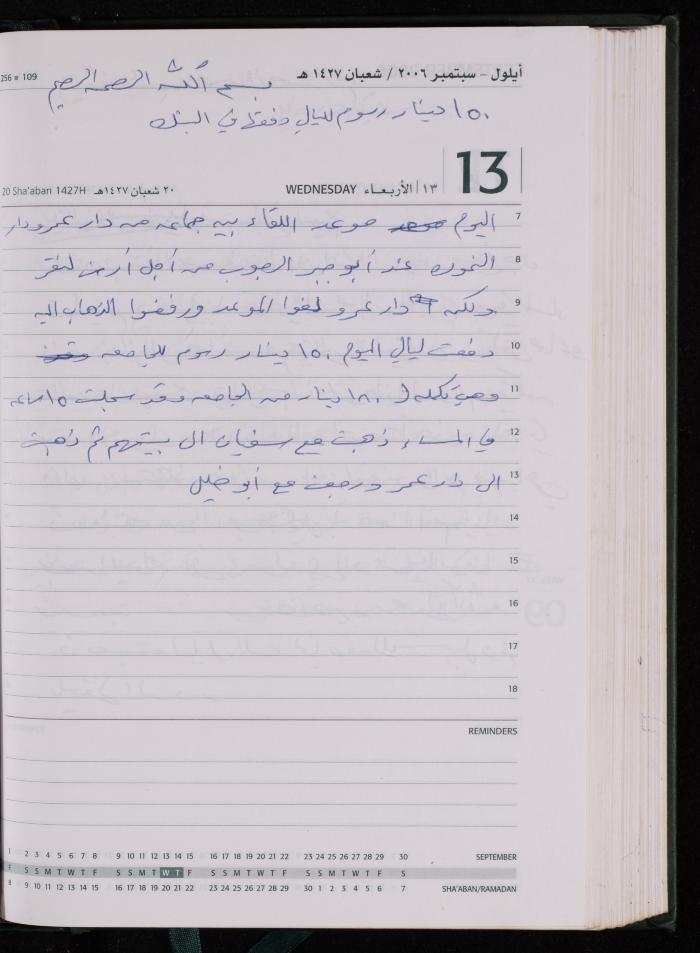 256 ■ 109
أيلول - سبتمبر ٢٠٠٦ / شعبان ١٤٢٧ هـ
بسم الله الرحمن الرحيم
١٥٠ دينار رسوم لليالي دفعتها في البنك
20 Sha'aban 1427H ٢٠ شعبان ١٤٢٧هـ WEDNESDAY ١٣ | الأربعاء 13
7 اليوم موعد اللقاء بين جماعه من دار عمرو ودار
8 عند أبو جبر من أجل أرض
9 ولكن دار عمرو لغوا الموعد ورفضوا الذهاب اليه
10 دفعت ليالي اليوم ١٥٠ دينار رسوم للجامعه
11 وهي تكمله ل ١٨٠ دينار من الجامعه وقد سجلت ١٥ ساعه
12 في المساء ذهبت مع سفيان الى بيتهم ثم ذهبت
13 الى دار عمر ورجعت مع أبو خليل
14
15
16
17
18
REMINDERS
1 2 3 4 5 6 7 8 9 10 11 12 13 14 15 16 17 18 19 20 21 22 23 24 25 26 27 28 29 30 SEPTEMBER
F S S M T W T F S S M T W T F S S M T W T F S S M T W T F S
8 9 10 11 12 13 14 15 16 17 18 19 20 21 22 23 24 25 26 27 28 29 30 1 2 3 4 5 6 7 SHA'ABAN/RAMADAN